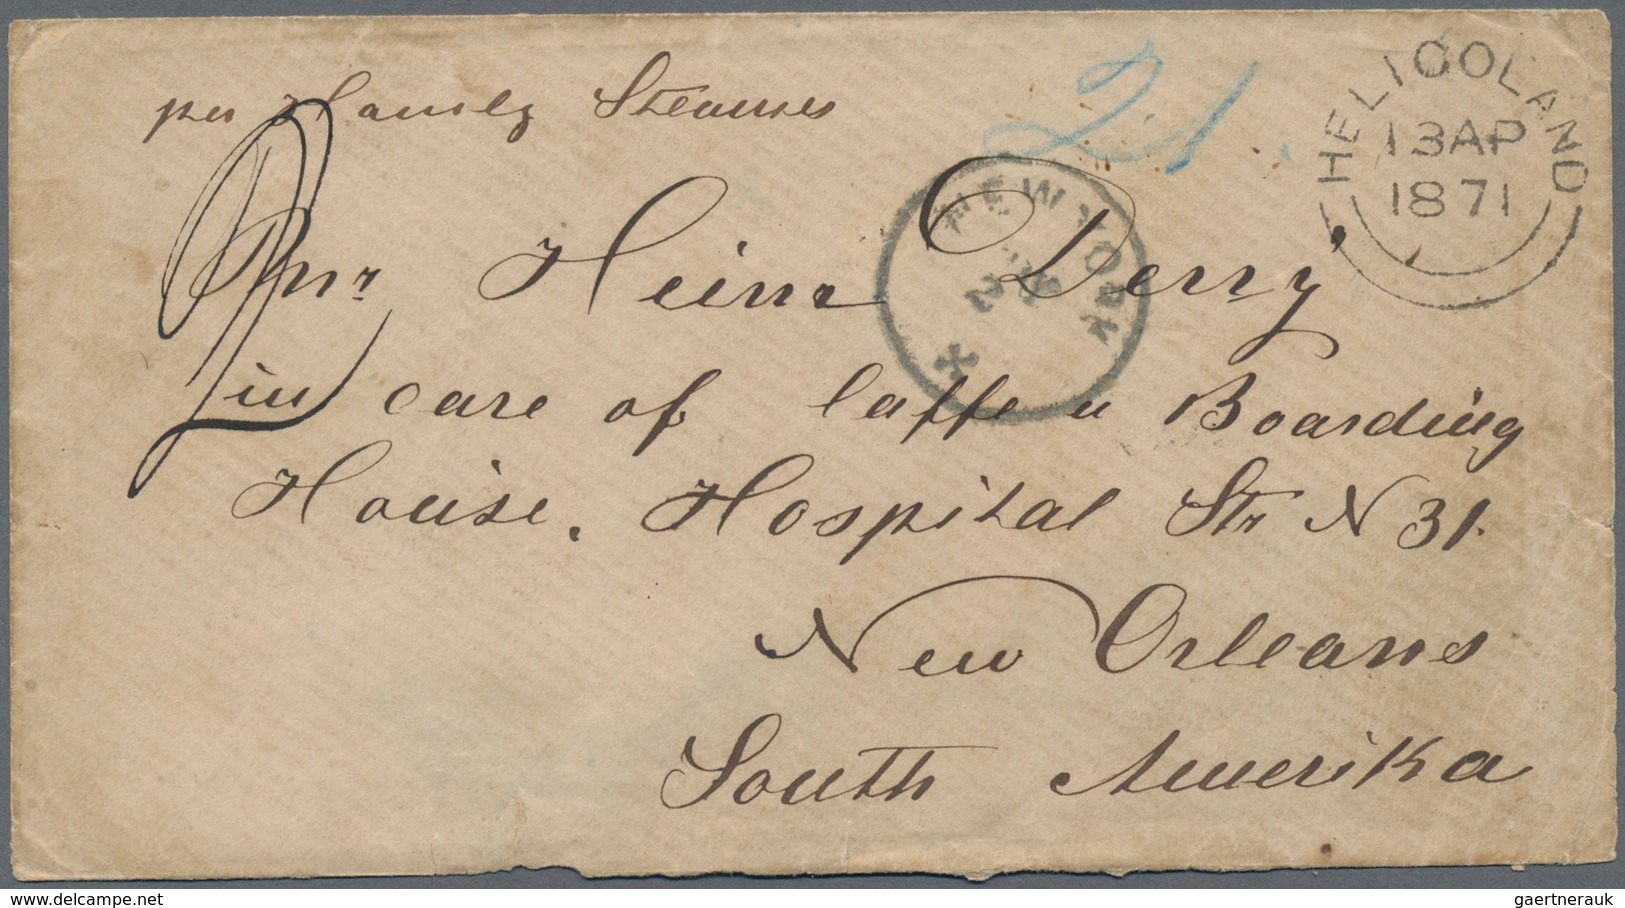 per Steamer
21
HELIGOLAND
13 AP
1871
NEW YORK
Mr Heinr Derry
in care of Boarding
House. Hospital Str N 31.
New Orleans
South Amerika
delcampe.net
gaertnerauk